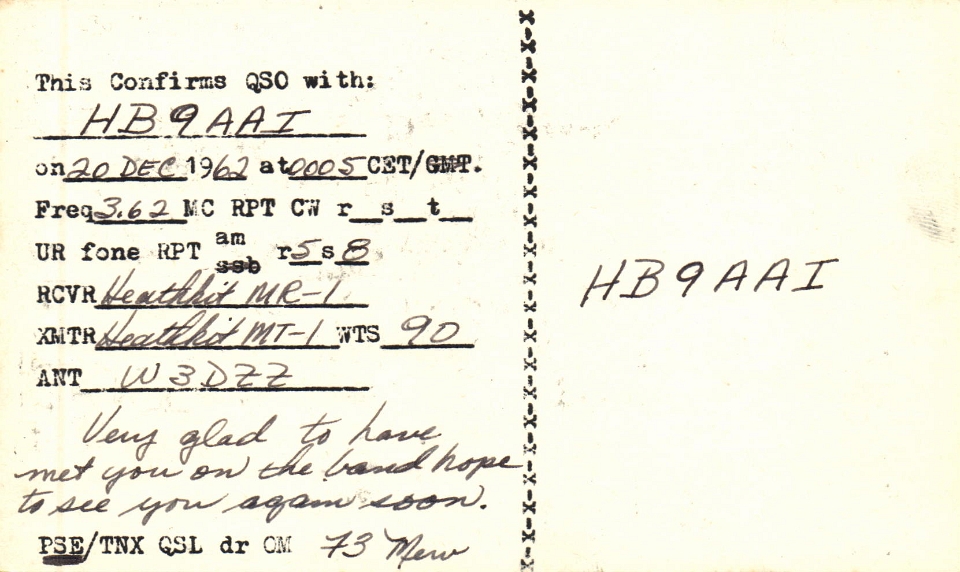 This Confirms QSO with:
HB9AAI
on 20 DEC 1962 at 0005 CET/GMT.
Freq 3.62 MC RPT CW r__s__t__
UR fone RPT am ssb r 5 s 8
RCVR Heathkit MR-1
XMTR Heathkit MT-1 WTS 90
ANT W3DZZ
Very glad to have
met you on the band hope
to see you again soon.
PSE/TNX QSL dr OM 73 Merv
X-X-X-X-X-X-X-X-X-X-X-X-X-X-X-X-X-X-X-X
HB9AAI